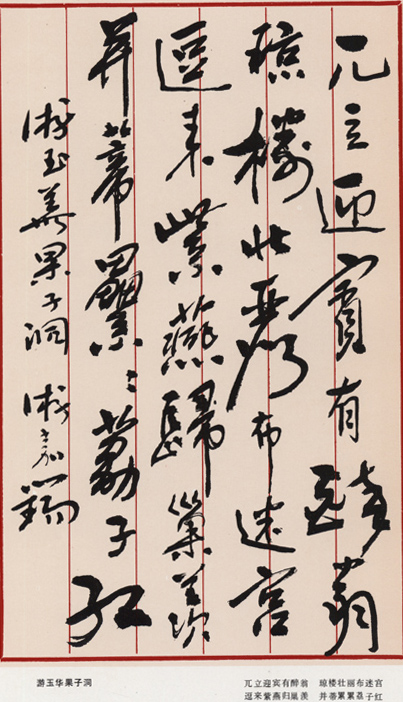 兀立迎賓有醉翁
琼樓壮麗布迷宫
逗来紫燕歸巢羡
并蒂纍々荔子红
游玉華果子洞 游嘉
游玉华果子洞
兀立迎宾有醉翁 琼楼壮丽布迷宫
逗来紫燕归巢羡 并蒂累累荔子红